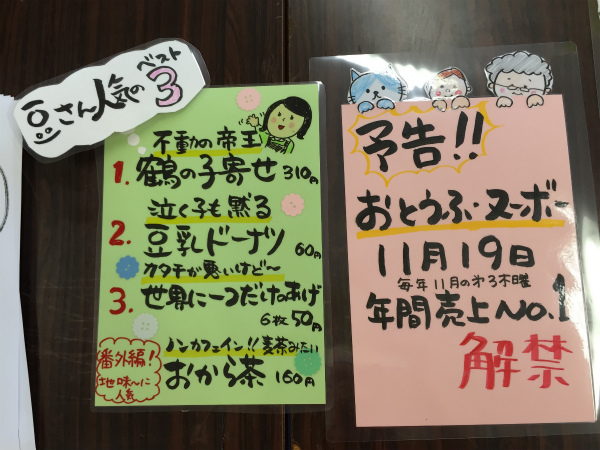 豆さん人気の
ベスト3
不動の帝王
1. 鶴の子寄せ 310円
泣く子も黙る
2. 豆乳ドーナツ 60円
カタチが悪いけど〜
3. 世界に一つだけのあげ
6枚 50円
番外編!
地味〜に
人気
ノンカフェイン!! 麦茶みたい
おから茶 160円
予告!!
おとうふ・ヌーボー
11月19日
毎年11月の第3木曜
年間売上No.1
解禁